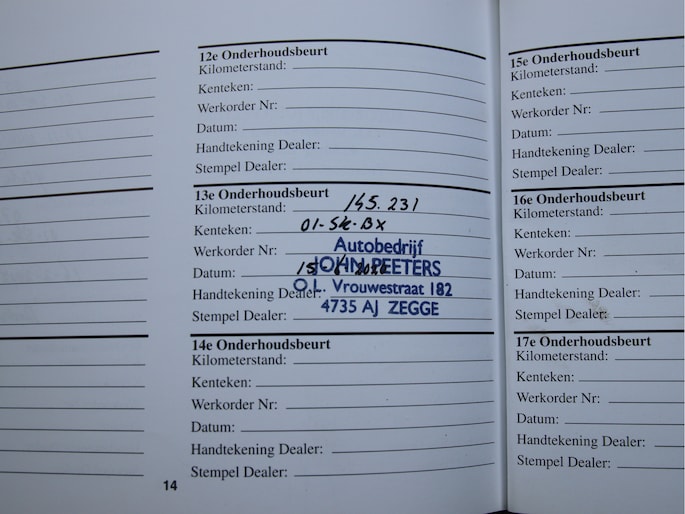 12e Onderhoudsbeurt
Kilometerstand:
Kenteken:
Werkorder Nr:
Datum:
Handtekening Dealer:
Stempel Dealer:
13e Onderhoudsbeurt
Kilometerstand: 145.231
Kenteken: 01-SK-BX
Werkorder Nr:
Autobedrijf
Datum: 15-
JOHN PEETERS
Handtekening Dealer:
O.L. Vrouwestraat 182
Stempel Dealer:
4735 AJ ZEGGE
14e Onderhoudsbeurt
Kilometerstand:
Kenteken:
Werkorder Nr:
Datum:
Handtekening Dealer:
Stempel Dealer:
14
15e Onderhoudsbeurt
Kilometerstand:
Kenteken:
Werkorder Nr:
Datum:
Handtekening Dealer:
Stempel Dealer:
16e Onderhoudsbeurt
Kilometerstand:
Kenteken:
Werkorder Nr:
Datum:
Handtekening Dealer:
Stempel Dealer:
17e Onderhoudsbeurt
Kilometerstand:
Kenteken:
Werkorder Nr:
Datum:
Handtekening Dealer:
Stempel Dealer: